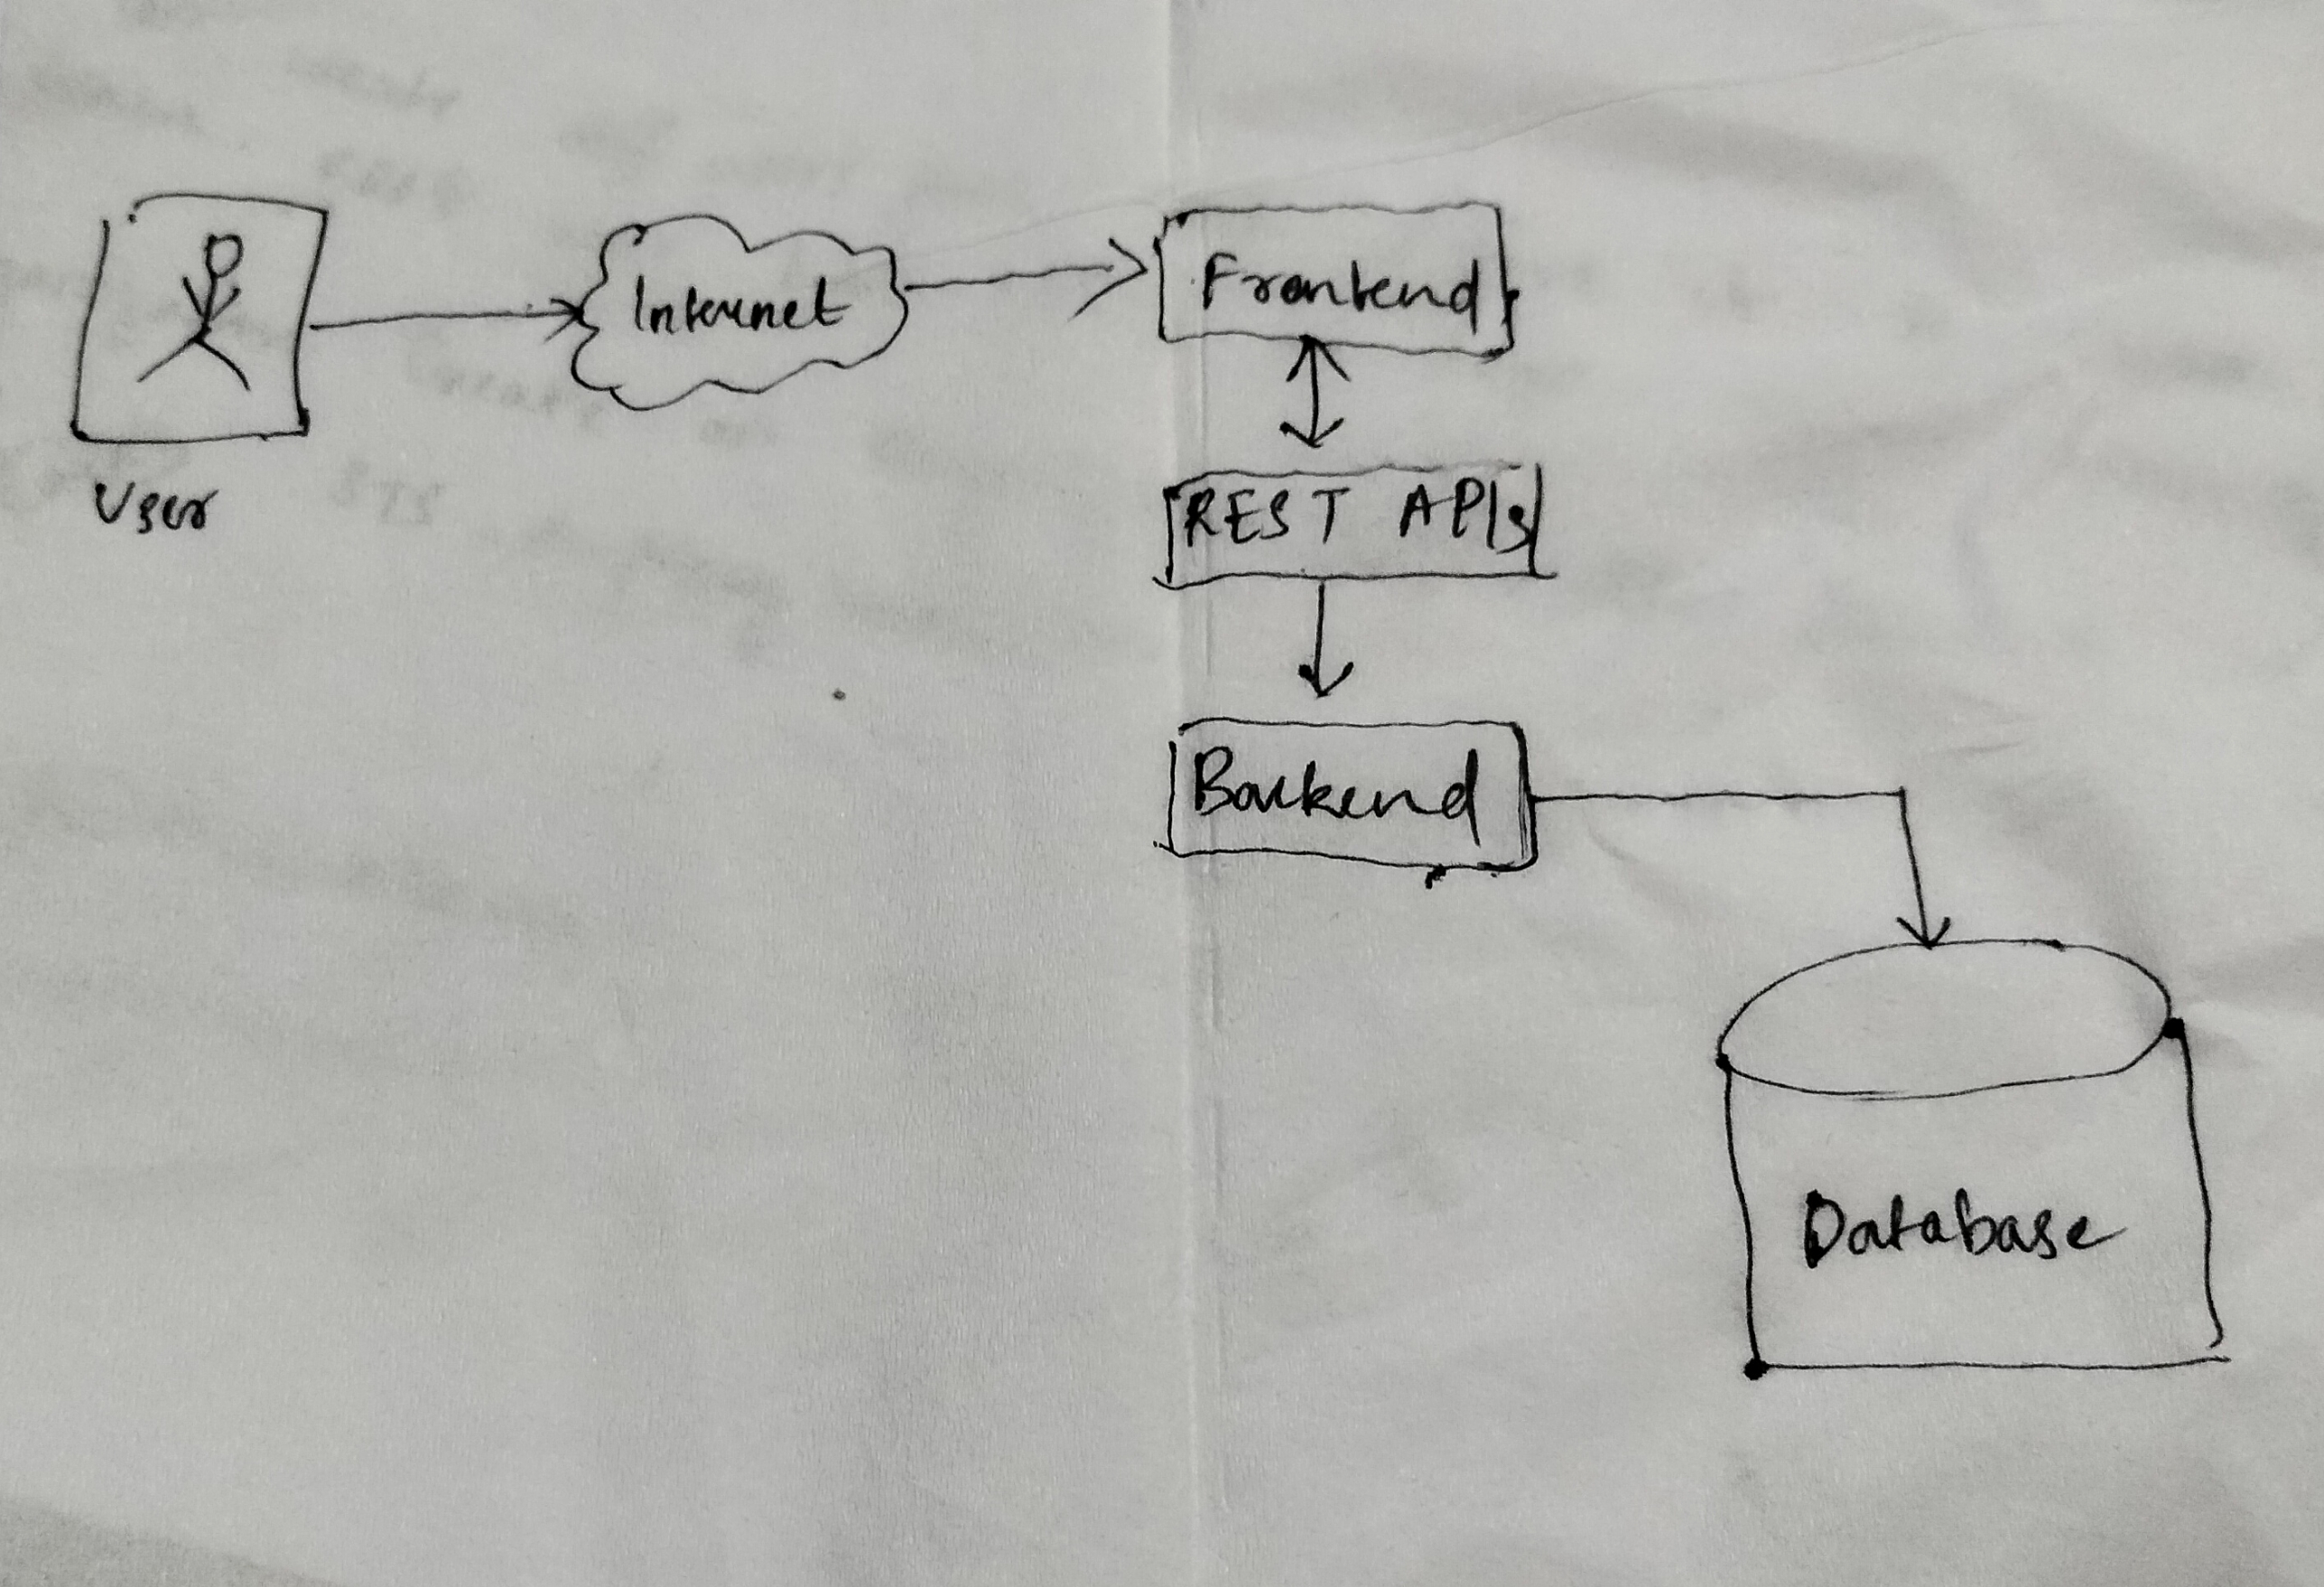 Internet
Frontend
User
REST APIs
Backend
Database